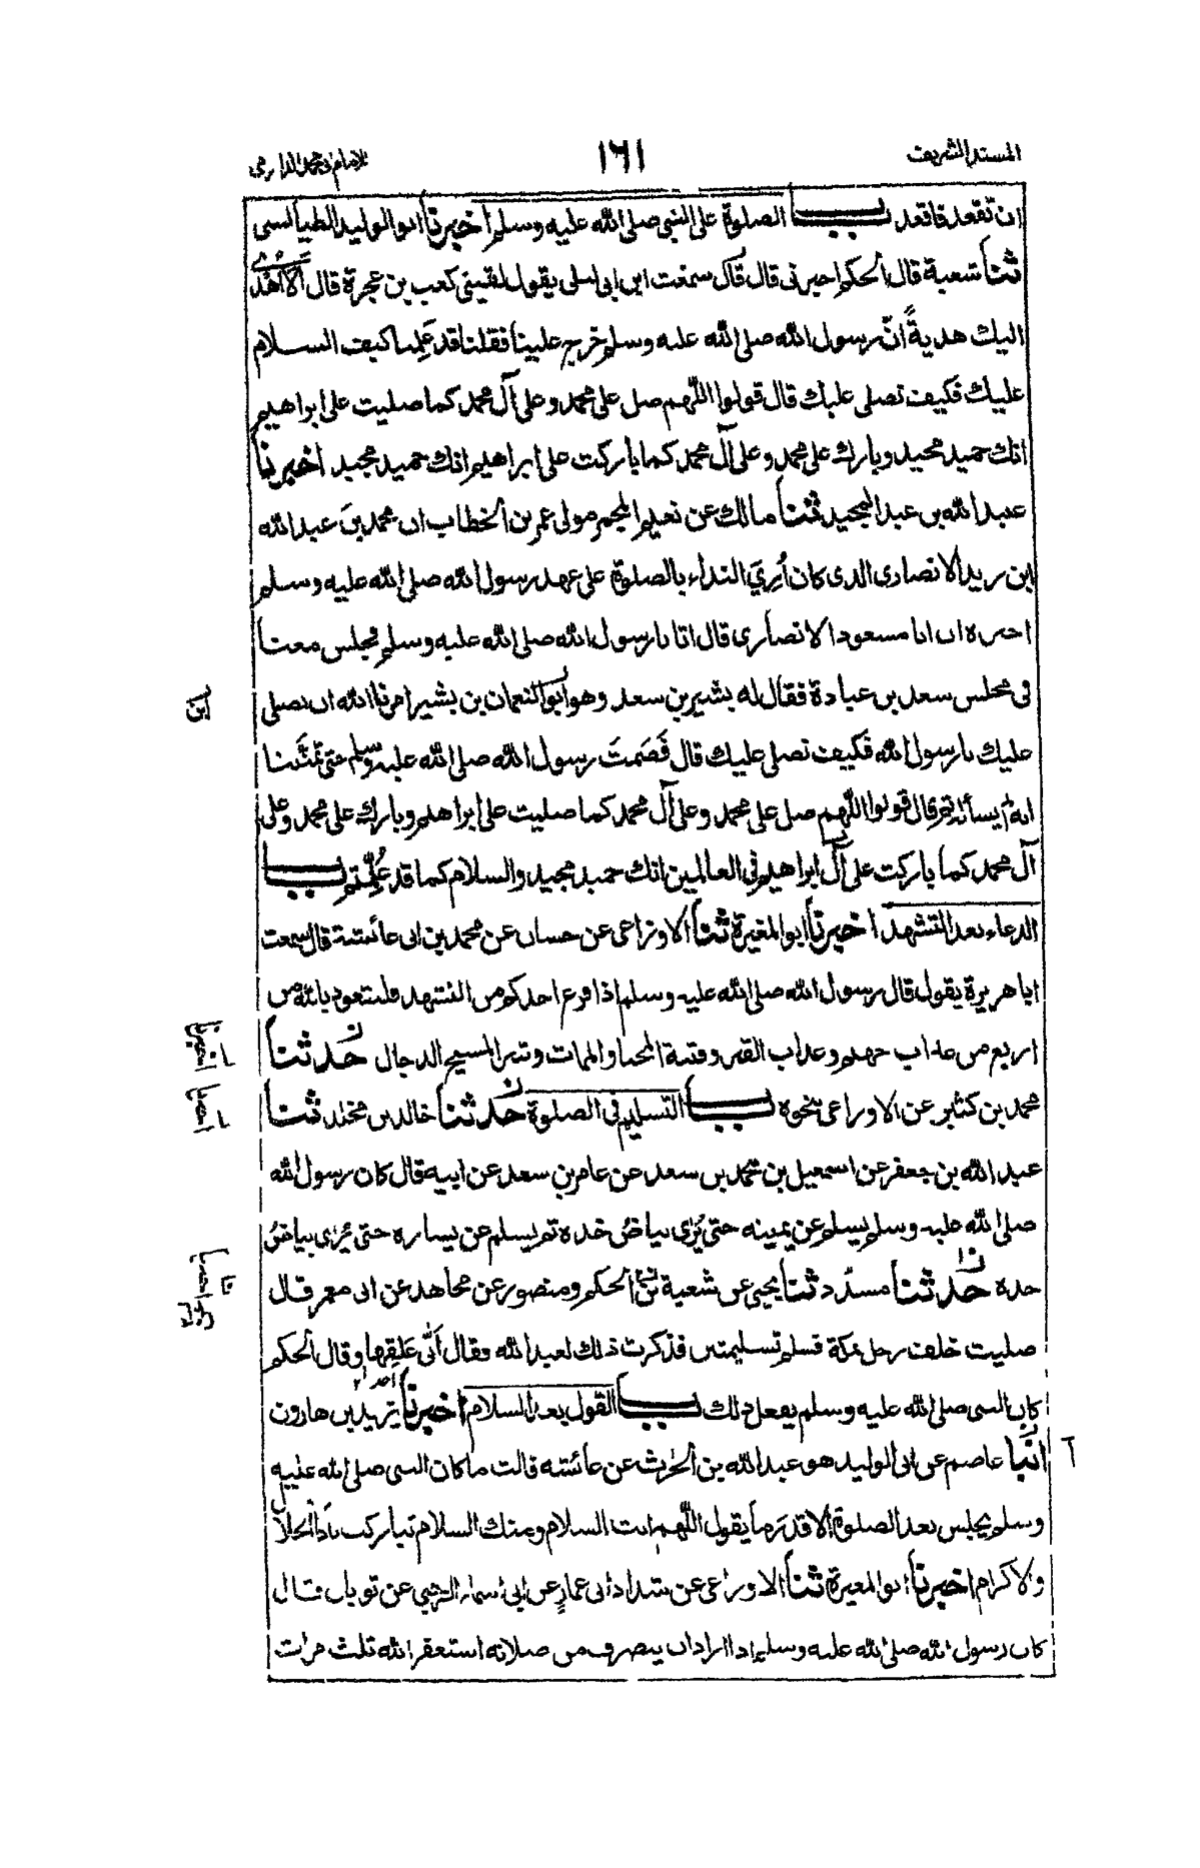 المسند الشريف ١٦١ للامام ابى محمد الدارمى
ان تقعد فاقعد باب الصلوة على النبى صلى الله عليه وسلم اخبرنا ابو الوليد الطيالسى
ثنا شعبة قال الحكم اخبرنى قال قال سمعت ابن ابى ليلى يقول لقينى كعب بن عجرة قال الا اهدى
اليك هدية ان رسول الله صلى الله عليه وسلم خرج علينا فقلنا قد علمنا كيف السلام
عليك فكيف نصلى عليك قال قولوا اللهم صل على محمد وعلى آل محمد كما صليت على ابراهيم
انك حميد مجيد وبارك على محمد وعلى آل محمد كما باركت على ابراهيم انك حميد مجيد اخبرنا
عبد الله بن عبد المجيد ثنا مالك عن نعيم المجمر مولى عمر بن الخطاب ان محمد بن عبد الله
ابن زيد الانصارى الذى كان أُرِيَ النداء بالصلوة على عهد رسول الله صلى الله عليه وسلم
اخبره ان ابا مسعود الانصارى قال اتانا رسول الله صلى الله عليه وسلم فجلس معنا
فى مجلس سعد بن عبادة فقال له بشير بن سعد وهو ابو النعمان بن بشير امرنا الله ان نصلى
ابن
عليك يا رسول الله فكيف نصلى عليك قال فَصَمتَ رسول الله صلى الله عليه وسلم حتى تمنينا
انه لم يسأله ثم قال قولوا اللهم صل على محمد وعلى آل محمد كما صليت على ابراهيم وبارك على محمد وعلى
آل محمد كما باركت على آل ابراهيم فى العالمين انك حميد مجيد والسلام كما قد عُلِّمتم باب
الدعاء بعد التشهد اخبرنا ابو المغيرة ثنا الاوزاعى عن حسان عن محمد بن ابى عائشة قال سمعت
ابا هريرة يقول قال رسول الله صلى الله عليه وسلم اذا فرغ احدكم من التشهد فليتعوذ بالله من
اربع من عذاب جهنم وعذاب القبر وفتنة المحيا والممات وشر المسيح الدجال حدثنا
محمد بن كثير عن الاوزاعى بنحوه باب التسليم فى الصلوة حدثنا خالد بن مخلد ثنا
عبد الله بن جعفر عن اسمعيل بن محمد بن سعد عن عامر بن سعد عن ابيه قال كان رسول الله
صلى الله عليه وسلم يسلم عن يمينه حتى يُرٰى بياضُ خده ثم يسلم عن يساره حتى يُرٰى بياضُ
خده حدثنا مسدد ثنا يحيى عن شعبة عن الحكم ومنصور عن مجاهد عن ابى معمر قال
صليت خلف رجل بمكة فسلم تسليمتين فذكرت ذلك لعبد الله فقال أنّى عَلِقها وقال الحكم
كان النبى صلى الله عليه وسلم يفعل ذلك باب القول بعد السلام اخبرنا يزيد بن هارون
انبا عاصم عن ابى الوليد هو عبد الله بن الحرث عن عائشة قالت ما كان النبى صلى الله عليه
وسلم يجلس بعد الصلوة الا قدر ما يقول اللهم انت السلام ومنك السلام تباركت ياذا الجلال
والاكرام اخبرنا ابو المغيرة ثنا الاوزاعى عن شداد ابى عمارٍ عن ابى اسماء الرحبى عن ثوبان قال
كان رسول الله صلى الله عليه وسلم اذا اراد ان ينصرف من صلاته استغفر الله ثلث مرات